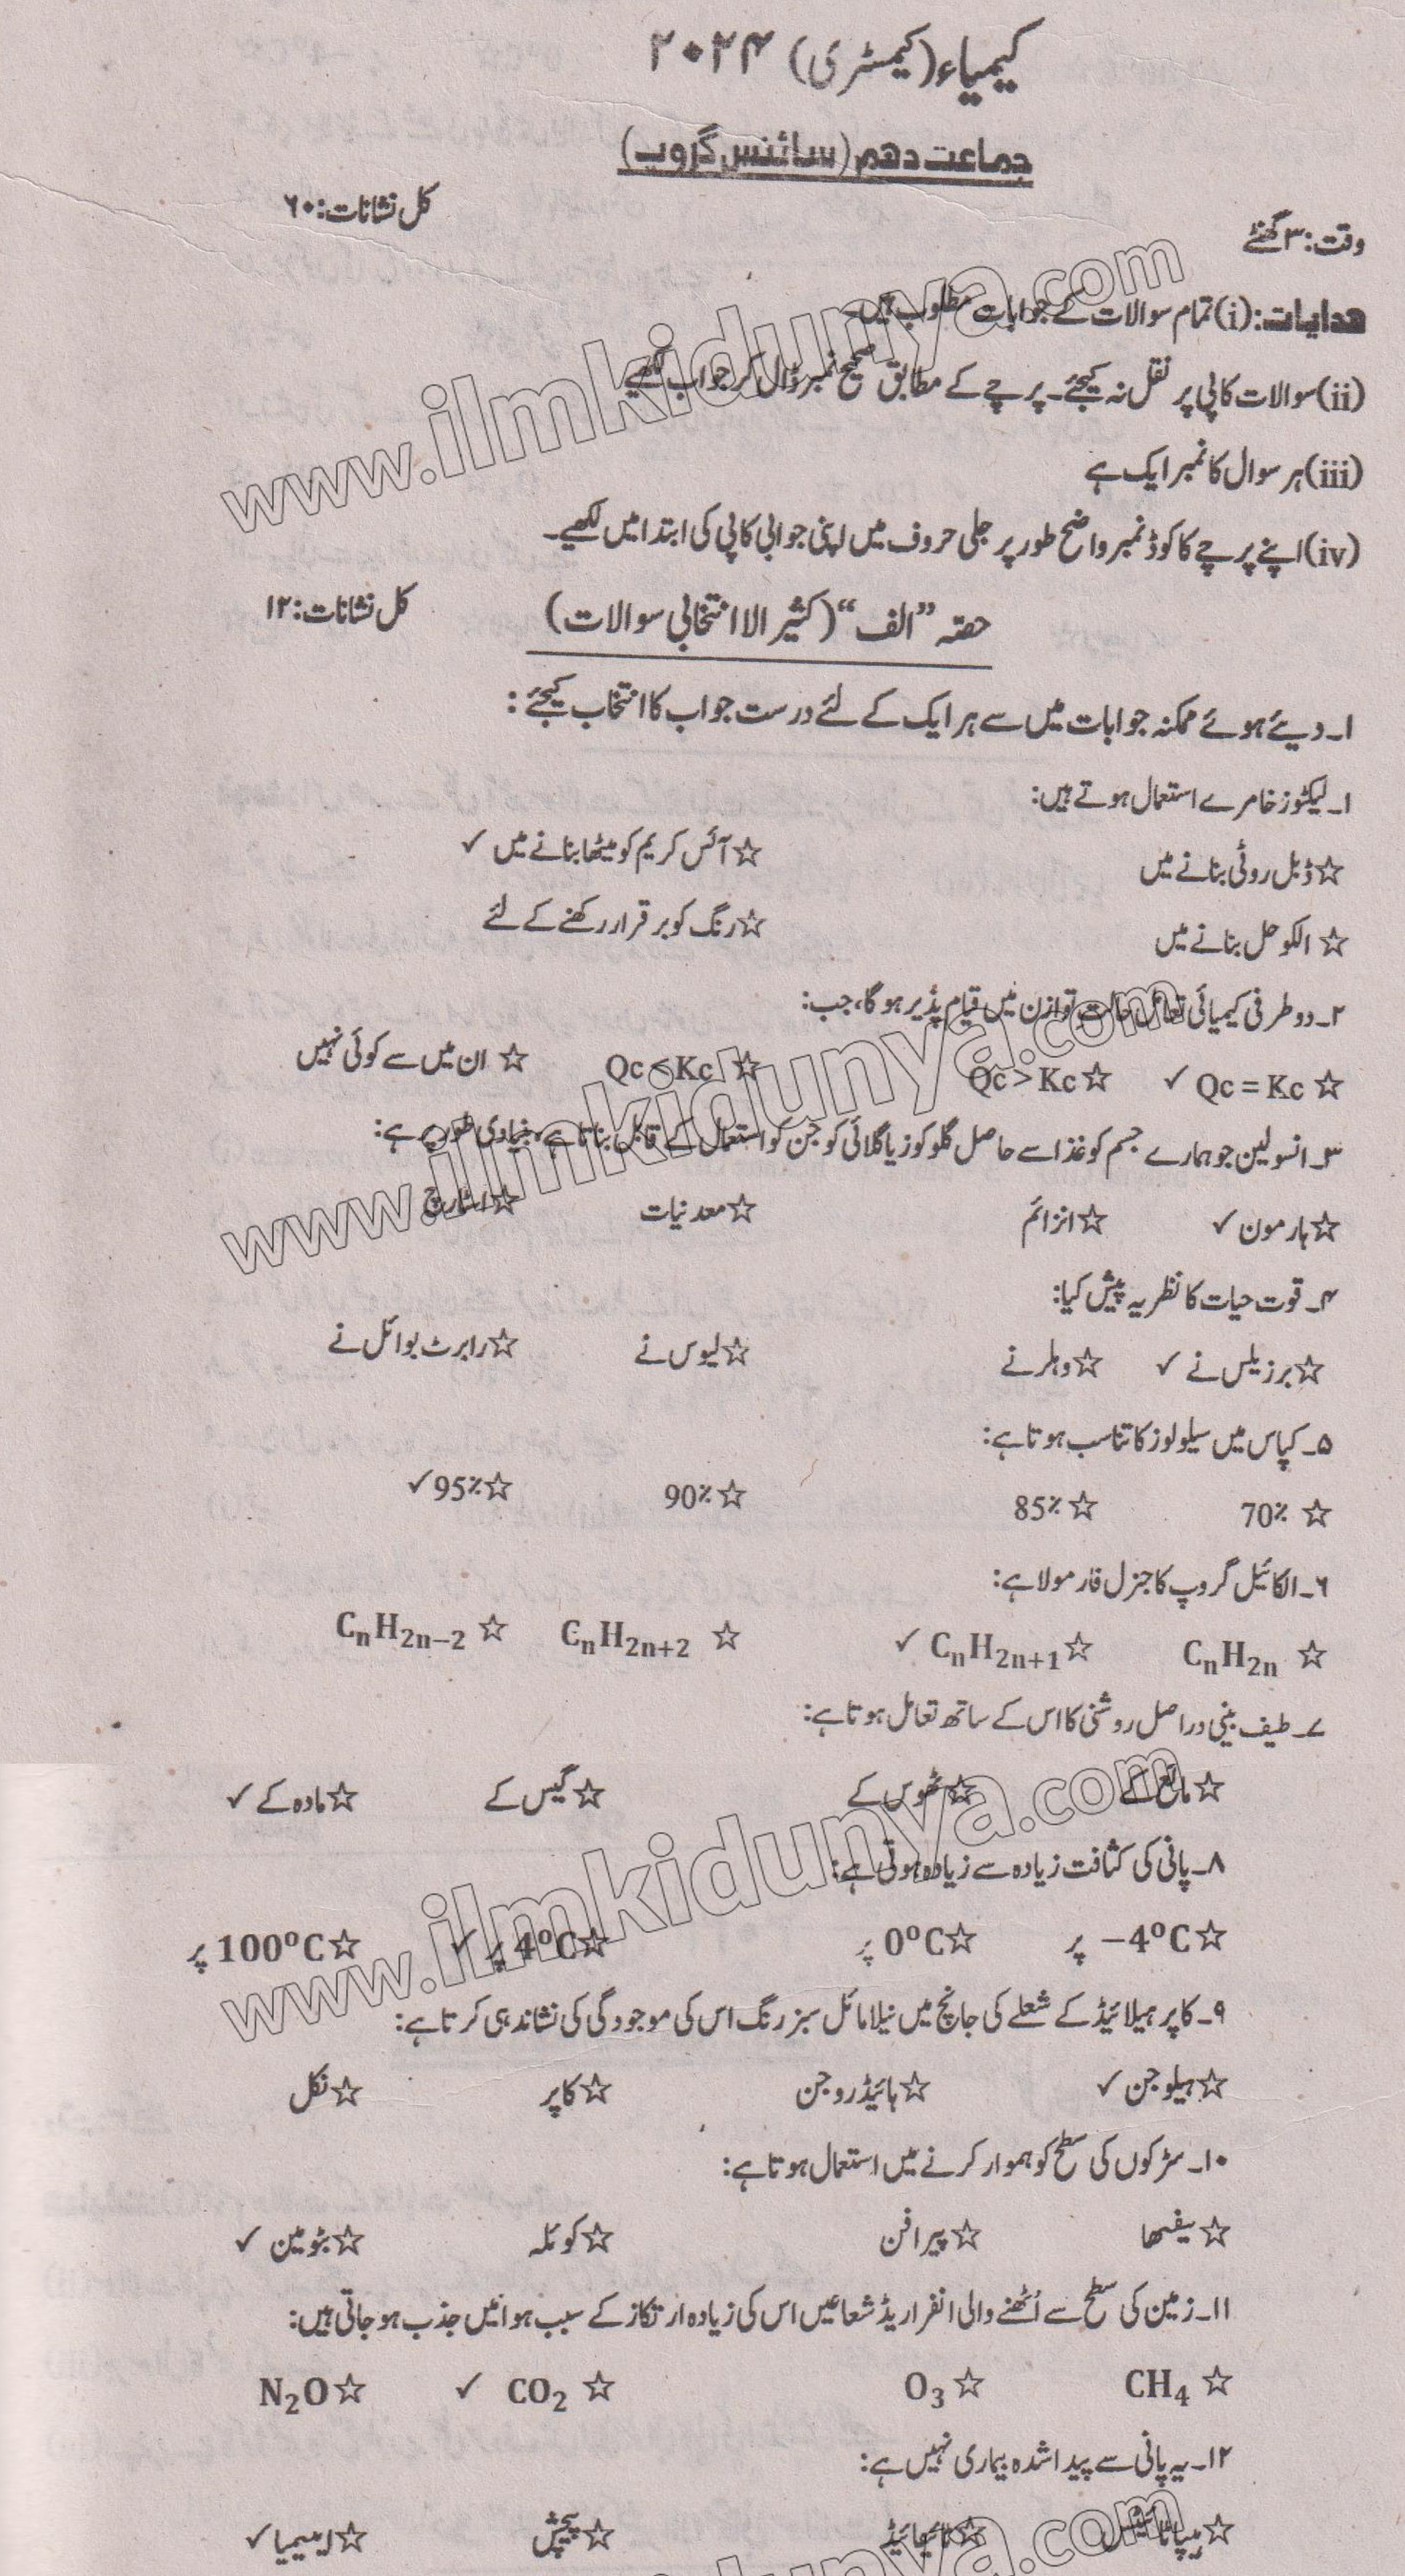 کیمیاء (کیمسٹری) ۲۰۲۴
جماعت دھم (سائنس گروپ)
کل نشانات: ۶۰
وقت: ۳ گھنٹے
ھدایات: (i) تمام سوالات کے جوابات مطلوب ہیں۔
(ii) سوالات کاپی پر نقل نہ کیجئے۔ پرچے کے مطابق صحیح نمبر ڈال کر جواب لکھیے
(iii) ہر سوال کا نمبر ایک ہے
(iv) اپنے پرچے کا کوڈ نمبر واضح طور پر جلی حروف میں اپنی جوابی کاپی کی ابتدا میں لکھیے۔
حصّہ ”الف“ (کثیر الاانتخابی سوالات) کل نشانات: ۱۲
۱۔ دیئے ہوئے ممکنہ جوابات میں سے ہر ایک کے لئے درست جواب کا انتخاب کیجئے:
۱۔ لیکٹوز خامرے استعمال ہوتے ہیں:
☆ ڈبل روٹی بنانے میں ☆ آئس کریم کو میٹھا بنانے میں ✓
☆ الکوحل بنانے میں ☆ رنگ کو برقرار رکھنے کے لئے
۲۔ دو طرفی کیمیائی تعامل حالت توازن میں قیام پذیر ہوگا، جب:
☆ Qc = Kc ✓ ☆ Qc > Kc ☆ Qc < Kc ☆ ان میں سے کوئی نہیں
۳۔ انسولین جو ہمارے جسم کو غذا سے حاصل گلوکوز یا گلائی کو جن کو استعمال کے قابل بناتا ہے، بنیادی طور پر ہے:
☆ ہارمون ✓ ☆ انزائم ☆ معدنیات ☆ اسٹارچ
۴۔ قوت حیات کا نظریہ پیش کیا:
☆ برزیلس نے ✓ ☆ وہلر نے ☆ لیوس نے ☆ رابرٹ بوائل نے
۵۔ کپاس میں سیلولوز کا تناسب ہوتا ہے:
☆ 70% ☆ 85% ☆ 90% ☆ 95% ✓
۶۔ الکائیل گروپ کا جنرل فارمولا ہے:
☆ CₙH₂ₙ ☆ CₙH₂ₙ₊₁ ✓ ☆ CₙH₂ₙ₊₂ ☆ CₙH₂ₙ₋₂
۷۔ طیف بینی دراصل روشنی کا اس کے ساتھ تعامل ہوتا ہے:
☆ مائع کے ☆ ٹھوس کے ☆ گیس کے ☆ مادہ کے ✓
۸۔ پانی کی کثافت زیادہ سے زیادہ ہوتی ہے:
☆ −4⁰C پر ☆ 0⁰C پر ☆ 4⁰C پر ✓ ☆ 100⁰C پر
۹۔ کاپر ہیلائیڈ کے شعلے کی جانچ میں نیلا مائل سبز رنگ اس کی موجودگی کی نشاندہی کرتا ہے:
☆ ہیلوجن ✓ ☆ ہائیڈروجن ☆ کاپر ☆ نکل
۱۰۔ سڑکوں کی سطح کو ہموار کرنے میں استعمال ہوتا ہے:
☆ نیفتھا ☆ پیرافن ☆ کوئلہ ☆ بٹومین ✓
۱۱۔ زمین کی سطح سے اُٹھنے والی انفراریڈ شعاعیں اس کی زیادہ ارتکاز کے سبب ہوا میں جذب ہو جاتی ہیں:
☆ CH₄ ☆ O₃ ☆ CO₂ ✓ ☆ N₂O
۱۲۔ یہ پانی سے پیدا شدہ بیماری نہیں ہے:
☆ ہیپاٹائٹس ☆ ٹائیفائیڈ ☆ پیچش ☆ اینیمیا ✓
www.ilmkidunya.com
www.ilmkidunya.com
www.ilmkidunya.com